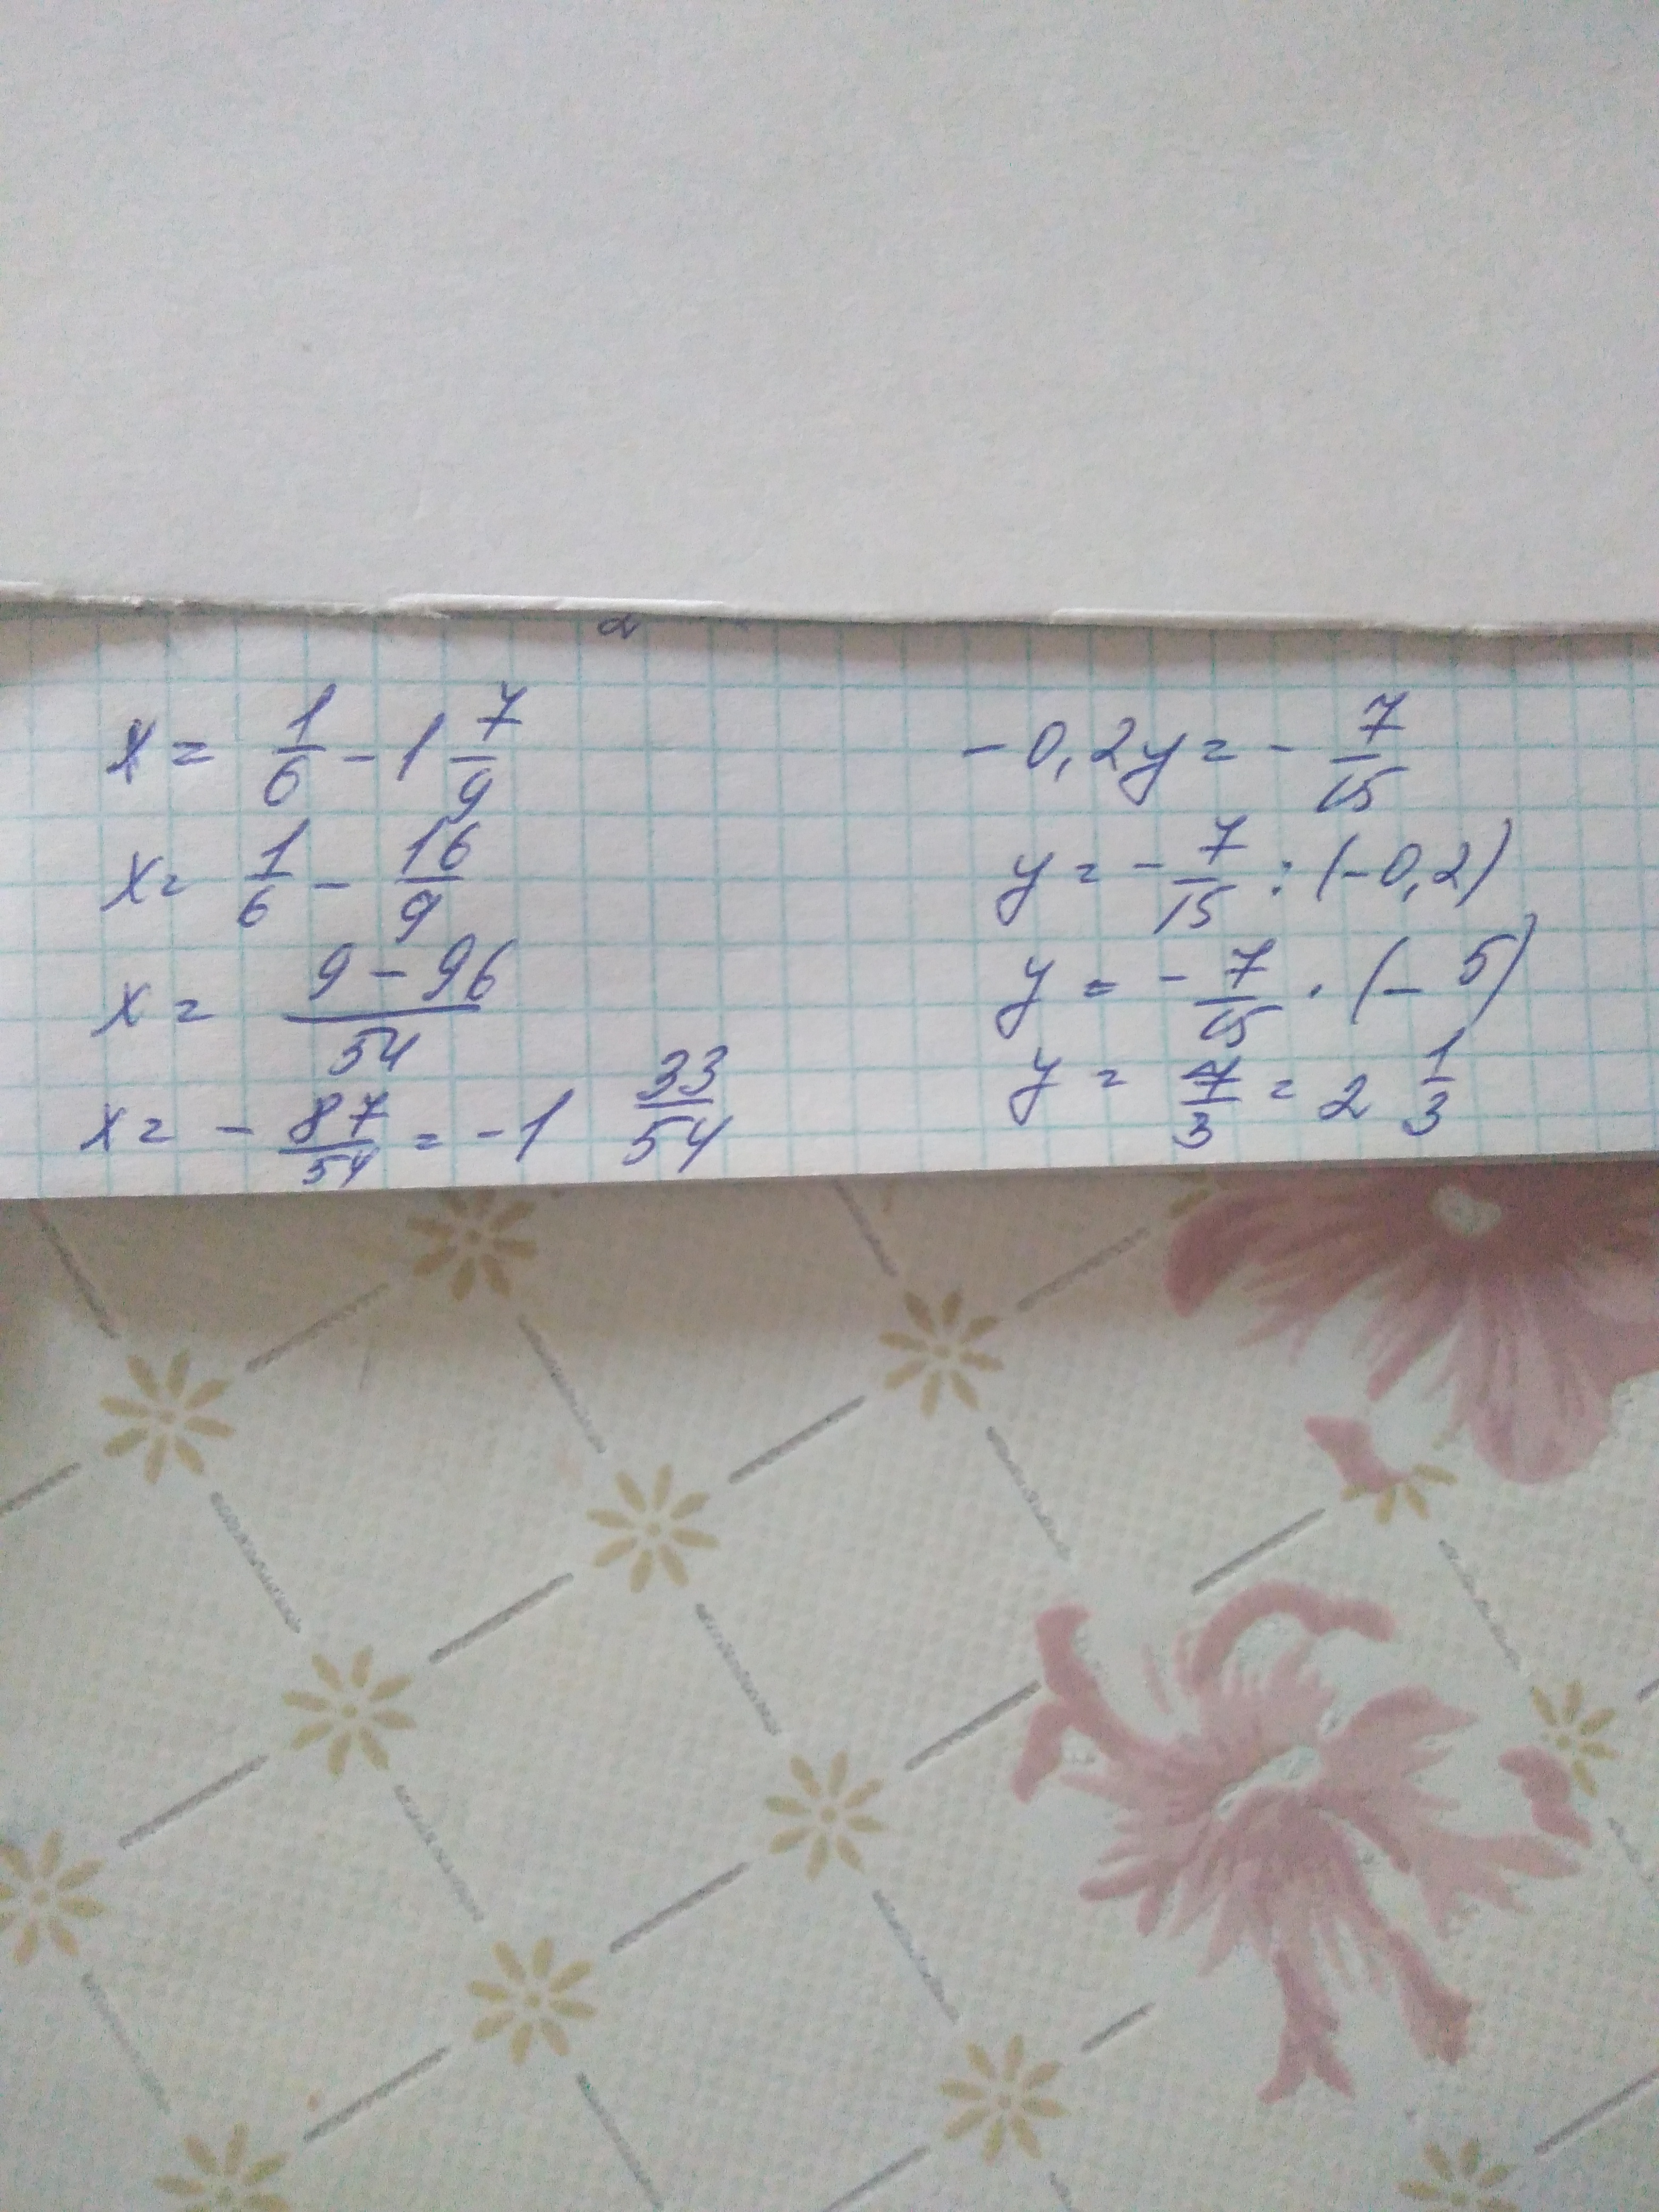 x = 1/6 - 1 7/9
x = 1/6 - 16/9
x = (9 - 96)/54
x = - 87/54 = -1 33/54
-0,2y = - 7/15
y = - 7/15 : (-0,2)
y = - 7/15 · (- 5)
y = 7/3 = 2 1/3